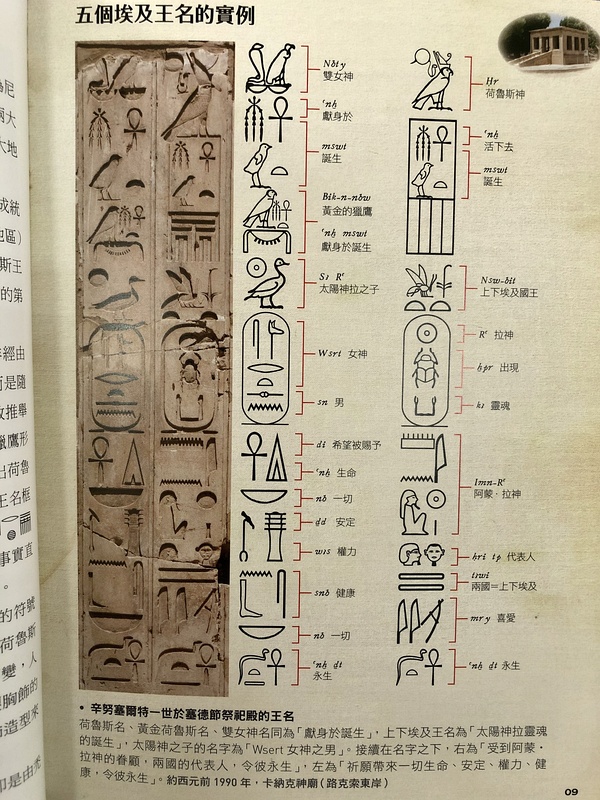 尼
兩大
大地
成統
地區）
斯王
的第
經由
而是隨
推舉
獵鷹形
出荷魯
王名框
事實直
。
的符號
荷魯斯
變，人
胸飾的
造型來
五個埃及王名的實例
Nbty
雙女神
ꜥnḫ
獻身於
mswt
誕生
Bik-n-nbw
黃金的獵鷹
ꜥnḫ mswt
獻身於誕生
Sꜣ Rꜥ
太陽神拉之子
Wsrt 女神
sn 男
di 希望被賜予
ꜥnḫ 生命
nb 一切
ḏd 安定
wꜣs 權力
snb 健康
nb 一切
ꜥnḫ ḏt
永生
Ḥr
荷魯斯神
ꜥnḫ
活下去
mswt
誕生
Nsw-bit
上下埃及國王
Rꜥ 拉神
ḫpr 出現
kꜣ 靈魂
Imn-Rꜥ
阿蒙·拉神
ḥri tp 代表人
tꜣwi
兩國＝上下埃及
mry 喜愛
ꜥnḫ ḏt 永生
• 辛努塞爾特一世於塞德節祭祀殿的王名
荷魯斯名、黃金荷魯斯名、雙女神名同為「獻身於誕生」，上下埃及王名為「太陽神拉靈魂
的誕生」，太陽神之子的名字為「Wsert 女神之男」。接續在名字之下，右為「受到阿蒙·
拉神的眷顧，兩國的代表人，令彼永生」，左為「祈願帶來一切生命、安定、權力、健
康，令彼永生」。約西元前 1990 年，卡納克神廟（路克索東岸）
09